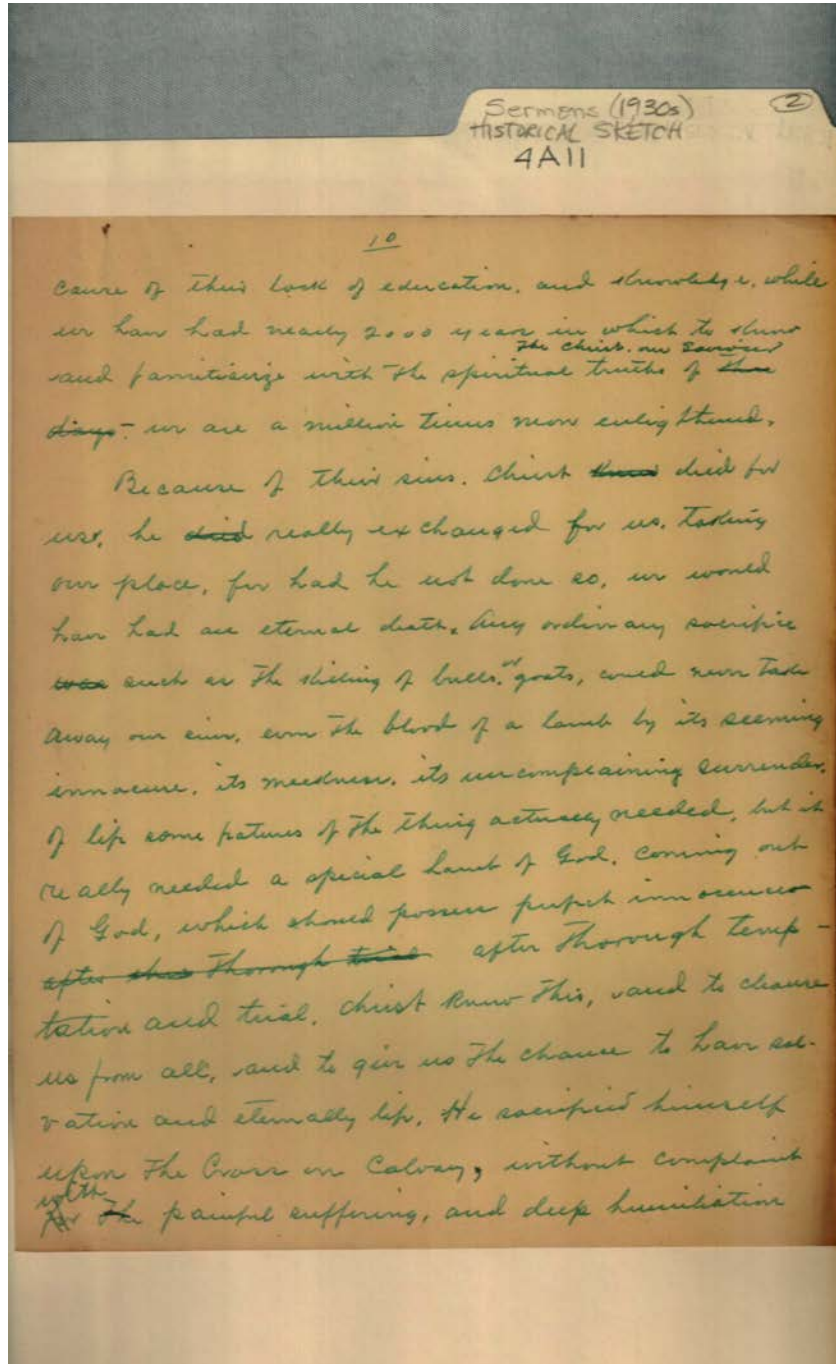 Sermons (1930s) 2
HISTORICAL SKETCH
4A11
10
cause of their lack of education, and knowledge, while
we have had nearly 2000 years in which to know
The Christ. our Saviour
and familiarize with the spiritual truths of those
days - we are a million times more enlightened.
Because of their sins. Christ died for
us, he died really exchanged for us. taking
our place, for had he not done so, we would
have had an eternal death. Any ordinary sacrifice
was such as the killing of bulls, or goats, could never take
away our sins, even the blood of a lamb by its seeming
innocence, its meekness, its uncomplaining surrender,
of life some features of the thing actually needed, but it
really needed a special Lamb of God, coming out
of God, which should possess perfect innocence
after thorough trial after thorough temp-
tation and trial. Christ knew this, and to cleanse
us from all, and to give us the chance to have sal-
vation and eternally life, He sacrificed himself
upon the Cross on Calvary, without complaint
with
for the painful suffering, and deep humiliation